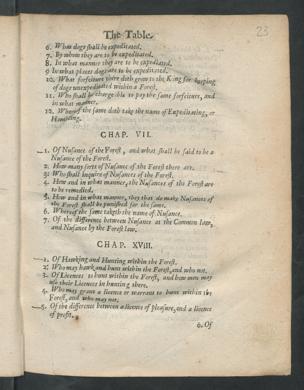 The Table.
23
6. What dogs shall be expeditated.
7. By whom they are to be expeditated.
8. In what manner they are to be expeditated.
9 In what places dogs are to be expeditated.
10. What forfeiture there doth grow to the King for keeping
of dogs unexpeditated within a Forest.
11. Who shall be chargeable to pay the same forfeiture, and
in what manner.
12. Whereof the same doth take the name of Expeditating, or
Hambling.
CHAP. VII.
1. Of Nusance of the Forest, and what shall be said to be a
Nusance of the Forest.
2. How many sorts of Nusance of the Forest there are.
3. Who shall inquire of Nusances of the Forest.
4. How and in what manner, the Nusances of the Forest are
to be remedied.
5. How and in what manner, they that do make Nusances of
the Forest shall be punished for the same.
6. Whereof the same taketh the name of Nusance.
7. Of the difference between Nusance at the Common law,
and Nusance by the Forest law.
CHAP. XVIII.
1. Of Hawking and Hunting within the Forest.
2. Who may hawk and hunt within the Forest, and who not.
3. Of Licences to hunt within the Forest, and how men may
use their Licences in hunting there.
4. Who may grant a licence or warrant to hunt within the
Forest, and who may not.
5. Of the difference between a licence of pleasure, and a licence
of profit.
6. Of